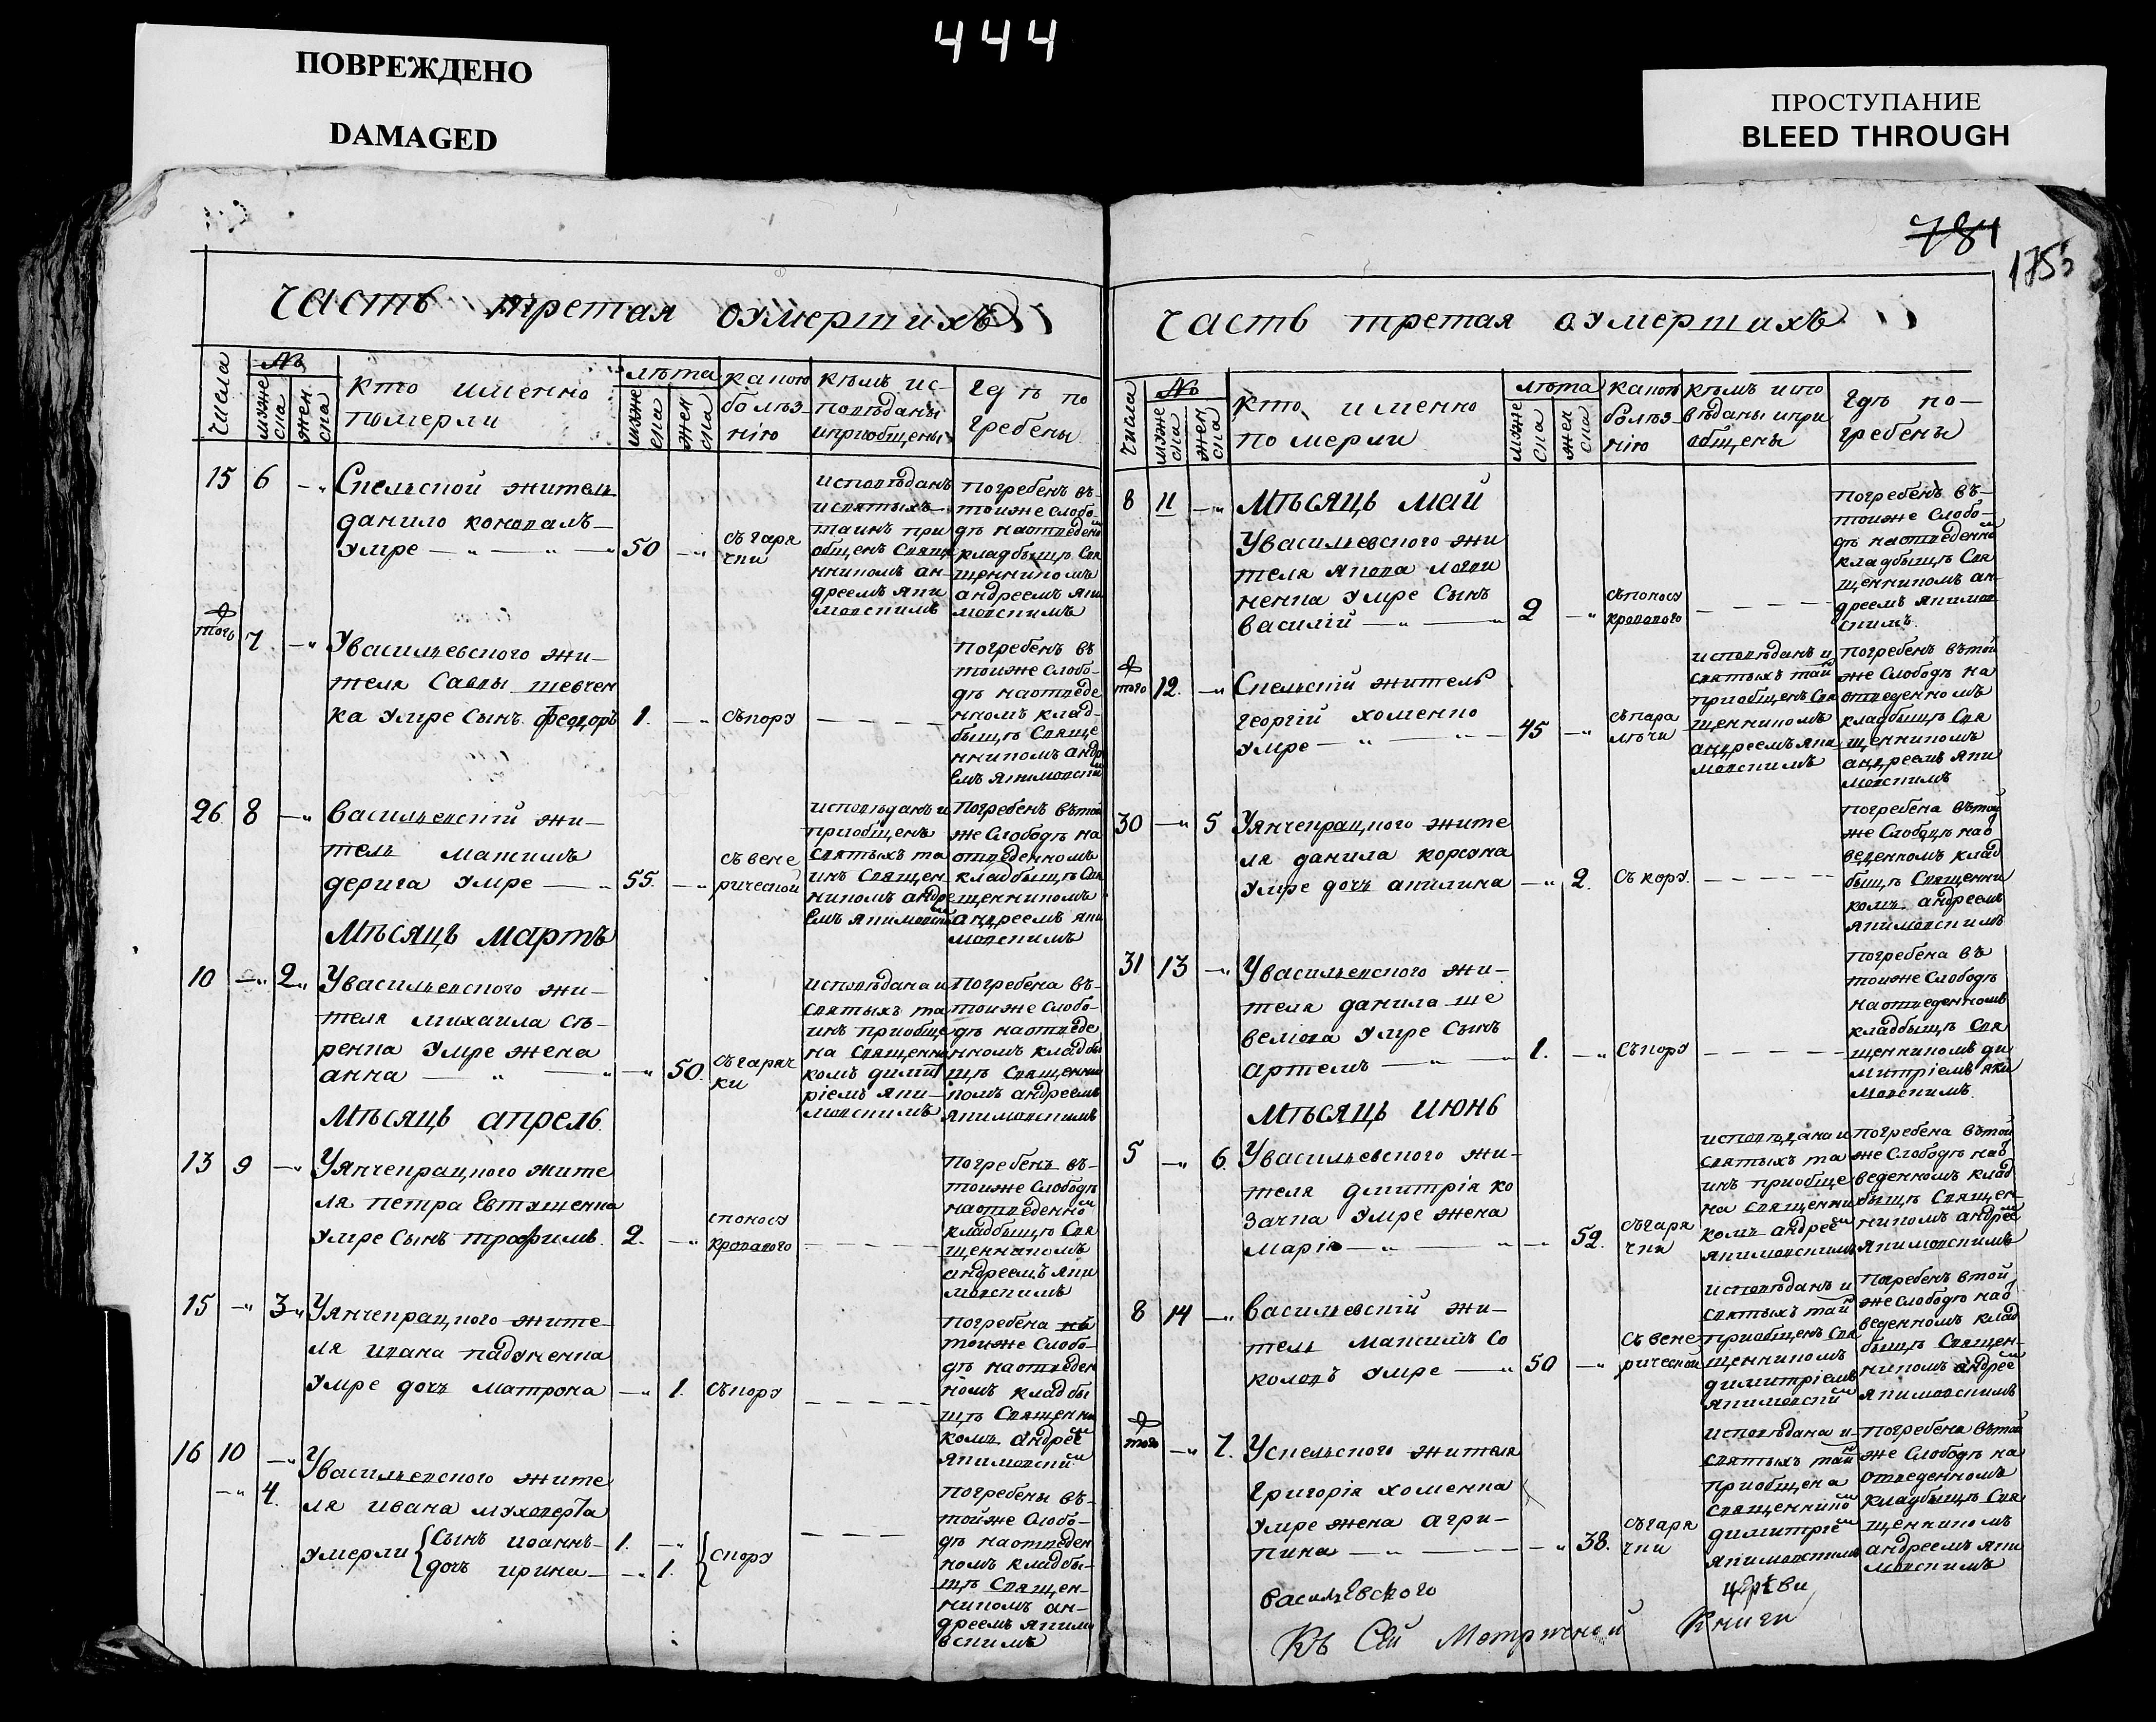 444
ПОВРЕЖДЕНО
DAMAGED
ПРОСТУПАНИЕ
BLEED THROUGH
784
1755
Часть третая оумершихъ
числа
№
муже
ска
жен
ска
кто именно
померли
лѣта
муже
ска
жен
ска
какою
болѣз-
нію
кѣмъ ис-
повѣданы
и пріобщены
гдѣ по
гребены
15 6
Спелыской житель
данило коновалъ
умре 50
съ горя
чки
исповѣданъ
и святыхъ
таинъ при
общенъ свящ
нникомъ ан-
дреемъ Яки
мовскимъ
погребенъ въ-
тоиже слобо-
дѣ на отведено
кладбыщѣ свя
щенникомъ
андреемъ Яки
мовскимъ
того 7
У васильевского жи-
теля Саввы шевчен
ка умре сынъ федоръ 1.
съ кору
погребенъ въ
тоиже слобо-
дѣ на отведе
нномъ клад-
быщѣ свяще
нникомъ андре
емъ Якимовски
26 8
васильевскій жи-
тель максимъ
дерига умре 55.
съ вене
рической
исповѣданъ и
пріобщенъ
святыхъ та
инъ священ
никомъ андре
емъ Якимовским
погребенъ въ той
же слободѣ на
отведенномъ
кладбыщѣ свя
щенникомъ
андреемъ Яки
мовскимъ
Мѣсяцъ мартъ
10 2
У васильевского жи-
теля михаила Сѣ-
ренка умре жена
анна 50.
съ горяч
ки
исповѣдана и
святыхъ та
инъ пріобще
на священни
комъ дими
ріемъ Яки-
мовскимъ
погребена въ-
тоиже слобо-
дѣ на отведе
нномъ кладбы
щѣ священни
комъ андреемъ
Якимовскимъ
Мѣсяцъ апрель
13 9
У янчекракного жите
ля петра Евтушенка
умре сынъ трофимъ. 2.
с поносу
кровавого
погребенъ въ-
тоиже слободѣ
на отведенно
кладбыщѣ свя
щенникомъ
андреемъ Яки
мовскимъ
15 3
У янчекракного жите-
ля ивана падуненка
умре дочъ матрона 1.
съ кору
погребена
тоиже слобо-
дѣ на отведен
номъ кладбы
щѣ священни
комъ андрее
Якимовски
16 10
4.
У васильевского жите
ля ивана
умерли сынъ иоаннъ 1.
дочъ ирина 1.
с кору
погребены въ-
тойже слобо-
дѣ на отведен
номъ кладбы-
щѣ священ-
никомъ ан-
дреемъ Якимо
вскимъ
Часть третая оумершихъ
числа
№
муже
ска
жен
ска
кто именно
померли
лѣта
муже
ска
жен
ска
какою
болѣз-
нію
кѣмъ испо
вѣданы и при
общены
гдѣ по-
гребены
8 11
Мѣсяцъ май
У васильевского жи
теля якова логви
ненка умре сынъ
василій 2
съ поносу
кровавого
погребенъ въ-
тоиже слобо-
дѣ на отведенно
кладбыщѣ свя
щенникомъ ан-
дреемъ Якимов
скимъ.
того 12.
Спелыскій житель
георгій хоменко
умре 45
съ пара
лѣчи
исповѣданъ и
святыхъ тай
пріобщенъ свя
щенникомъ
андреемъ Яки
мовскимъ
погребенъ въ той
же слободѣ на
отведенномъ
кладбыщѣ свя
щенникомъ
андреемъ Яки
мовскимъ
30 5
У янчекракного жите
ля данила корсуна
умре дочъ акилина 2.
съ кору.
погребена въ той
же слободѣ на
веденномъ клад
быщѣ священни
комъ андреемъ
Якимовскимъ
31 13
У васильевского жи-
теля данила ше
велюва умре сынъ
артемъ 1.
съ кору
погребена въ
тоиже слободѣ
на отведенномъ
кладбыщѣ свя
щенникомъ ди
митріемъ Яки
мовскимъ.
Мѣсяцъ июнь
5 6.
У васильевского жи-
теля дмитрія ко
зачка умре жена
марія 52.
съ горя
чки
исповѣдана и
святыхъ та
инъ пріобще
на священни
комъ андрее
Якимовскимъ
погребена въ той
же слободѣ на
веденномъ клад
быщѣ священ-
никомъ андрее
Якимовскимъ
8 14
васильевскій жи-
тель максимъ со
коловъ умре 50
съ вене
рической
исповѣданъ и
святыхъ тай
пріобщенъ свя
щенникомъ
димитріемъ
Якимовски
погребенъ в той
же слободѣ на
веденномъ клад
быщѣ священ-
никомъ андрее
Якимовскимъ
того 7.
У спелыского жителя
григорія хоменка
умре жена агри-
пина 38.
съ горя
чки
исповѣдана и
святыхъ тай
пріобщена
священнико
димитріе
Якимовскимъ
погребена въ той
же слободѣ на
отведенномъ
кладбыщѣ свя
щенникомъ
андреемъ Яки
мовскимъ
Васильевского
Къ Сей Метричной Книги